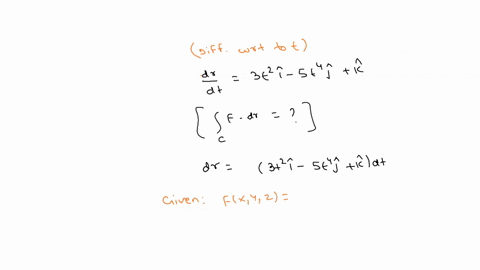 (diff. wrt to t)
dr/dt = 3t² î - 5t⁴ ĵ + k̂
[ ∫_C F · dr = ? ]
dr = (3t² î - 5t⁴ ĵ + k̂) dt
Given: F(x,y,z) =